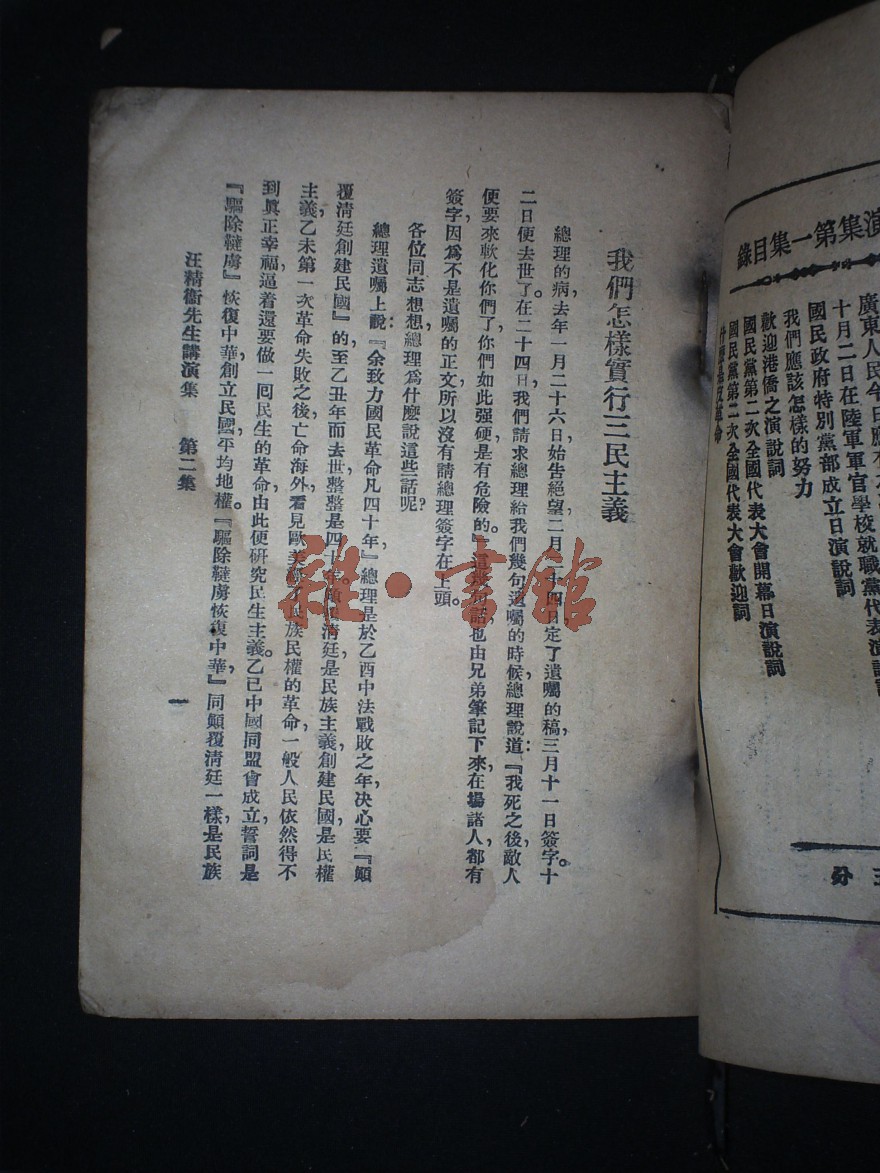 演集第一集目錄
十月二日在陸軍軍官學校就職黨代表演說詞
國民政府特別黨部成立日演說詞
我們應該怎樣的努力
歡迎港僑之演說詞
國民黨第二次全國代表大會開幕日演說詞
國民黨第二次全國代表大會歡迎詞
分
我們怎樣實行三民主義
總理的病，去年一月二十六日始告絕望，二月二十四日定了遺囑的稿，三月十一日簽字。十
二日便去世了。在二十四日，我們請求總理給我們幾句遺囑的時候，總理說道：『我死之後，敵人
便要來軟化你們了，你們如此强硬，是有危險的。』這幾句話也由兄弟筆記下來，在場諸人都有
簽字，因爲不是遺囑的正文，所以沒有請總理簽字在上頭。
各位同志想想，總理爲什麽說這些話呢？
總理遺囑上說：『余致力國民革命凡四十年』總理是於乙酉中法戰敗之年，决心要『顚
覆清廷創建民國』的，至乙丑年而去世，整整是四十年。顚覆清廷是民族主義，創建民國，是民權
主義，乙未第一次革命失敗之後，亡命海外，看見歐美各民族民權的革命，一般人民依然得不
到眞正幸福，逼着還要做一囘民生的革命，由此便研究民生主義。乙巳中國同盟會成立，誓詞是
『驅除韃虜，恢復中華，創立民國，平均地權。』『驅除韃虜恢復中華』同顚覆清廷一樣，是民族
汪精衞先生講演集 第二集
一
雜·書館